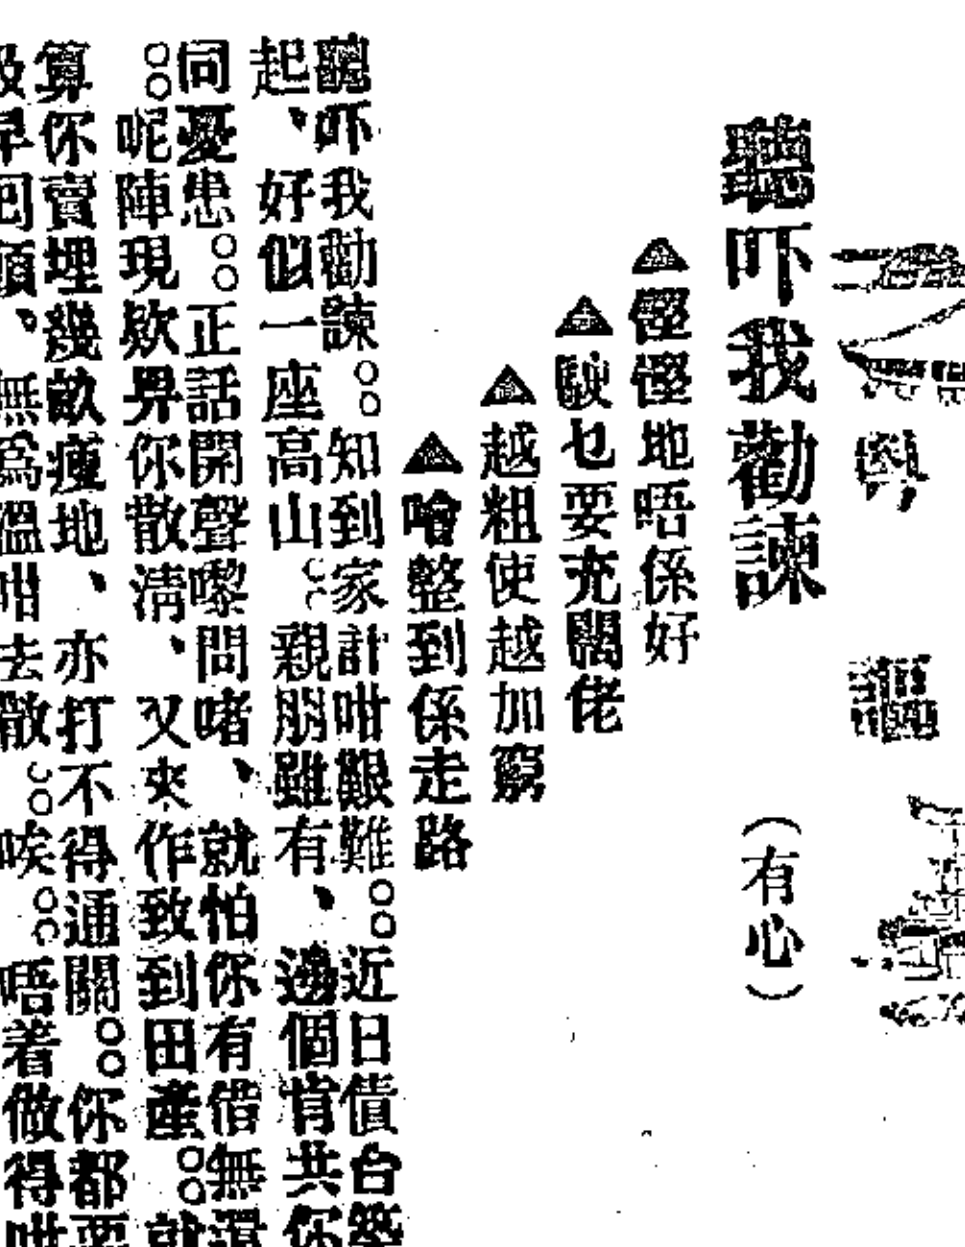 粵
謳
聽吓我勸諫
(有心)
▲慳慳地唔係好
▲駛乜要充闊佬
▲越粗使越加窮
▲噲整到係走路
聽吓我勸諫○○知到家計咁艱難○○近日債台築
起、好似一座高山○○親朋雖有、邊個肯共你
同憂患○○正話開聲嚟問啫、就怕你有借無還
○○呢陣現欵畀你散淸、又來作致到田產○○就
算你賣埋幾畝瘦地、亦打不得通關○○你都要
及早回頭、無爲溫咁去散○○唉○○唔着做得咁